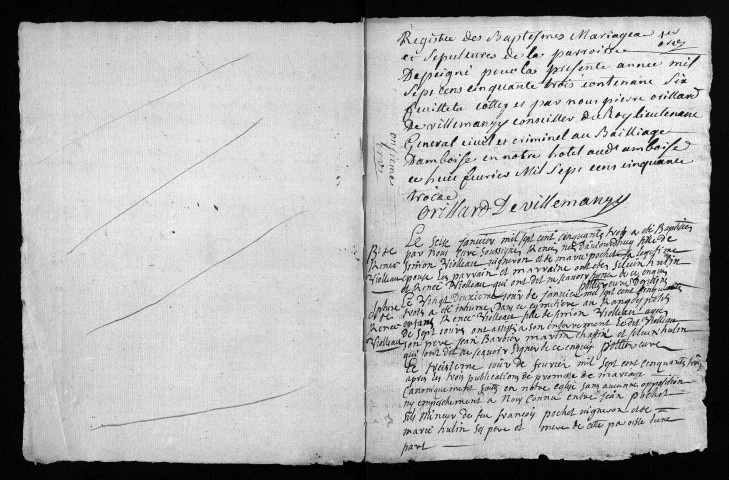 Registre des Baptesmes Mariages
et Sepultures de la parroisse
Despeigné pour la presente annee mil
Sept cens cinquante trois contenant Six
feuillets cottez et par nous pierre orillard
De villemanzy conseiller du Roy lieutenant
General civil et criminel au Bailliage
Damboise en notre hotel aud amboise
ce huit fevrier Mil Sept cens cinquante
trois
Orillard De villemanzy
Le Seise janvier mil sept cent cinquante trois a été Baptisée
par nous curé soussigné Renee née fille de
Simon Violleau vigneron et de marie pochet sa legitime
epouse les parrain et marraine ont été Silvain hulin
et Renee Violleau qui ont dit ne scavoir signer de ce enquis
B. de
Renee
Violleau
Le vingt Deuxieme jour de janvier mil sept cent cinquante
trois a été inhumé dans ce cimetiere au Rang des petits
enfans Renee Violleau fille de Simon Violleau agée
de Sept jours ont assisté a son enterrement led Violleau
Son pere jean Barbier martin chafin et Silvain hulin
qui ont dit ne scavoir Signer de ce enquis pottier curé
Sepulture
de
Renee
Violleau
Le troisieme jour de fevrier mil Sept cent cinquante trois
apres les trois publications de promesse de mariage
Canoniquement faites en notre eglise sans aucune opposition
ny empeschement a Nous Connu entre jean pochet
fils Mineur de feu françois pochet vigneron et de
marie hulin ses pere et mere de cette paroisse d'une
part